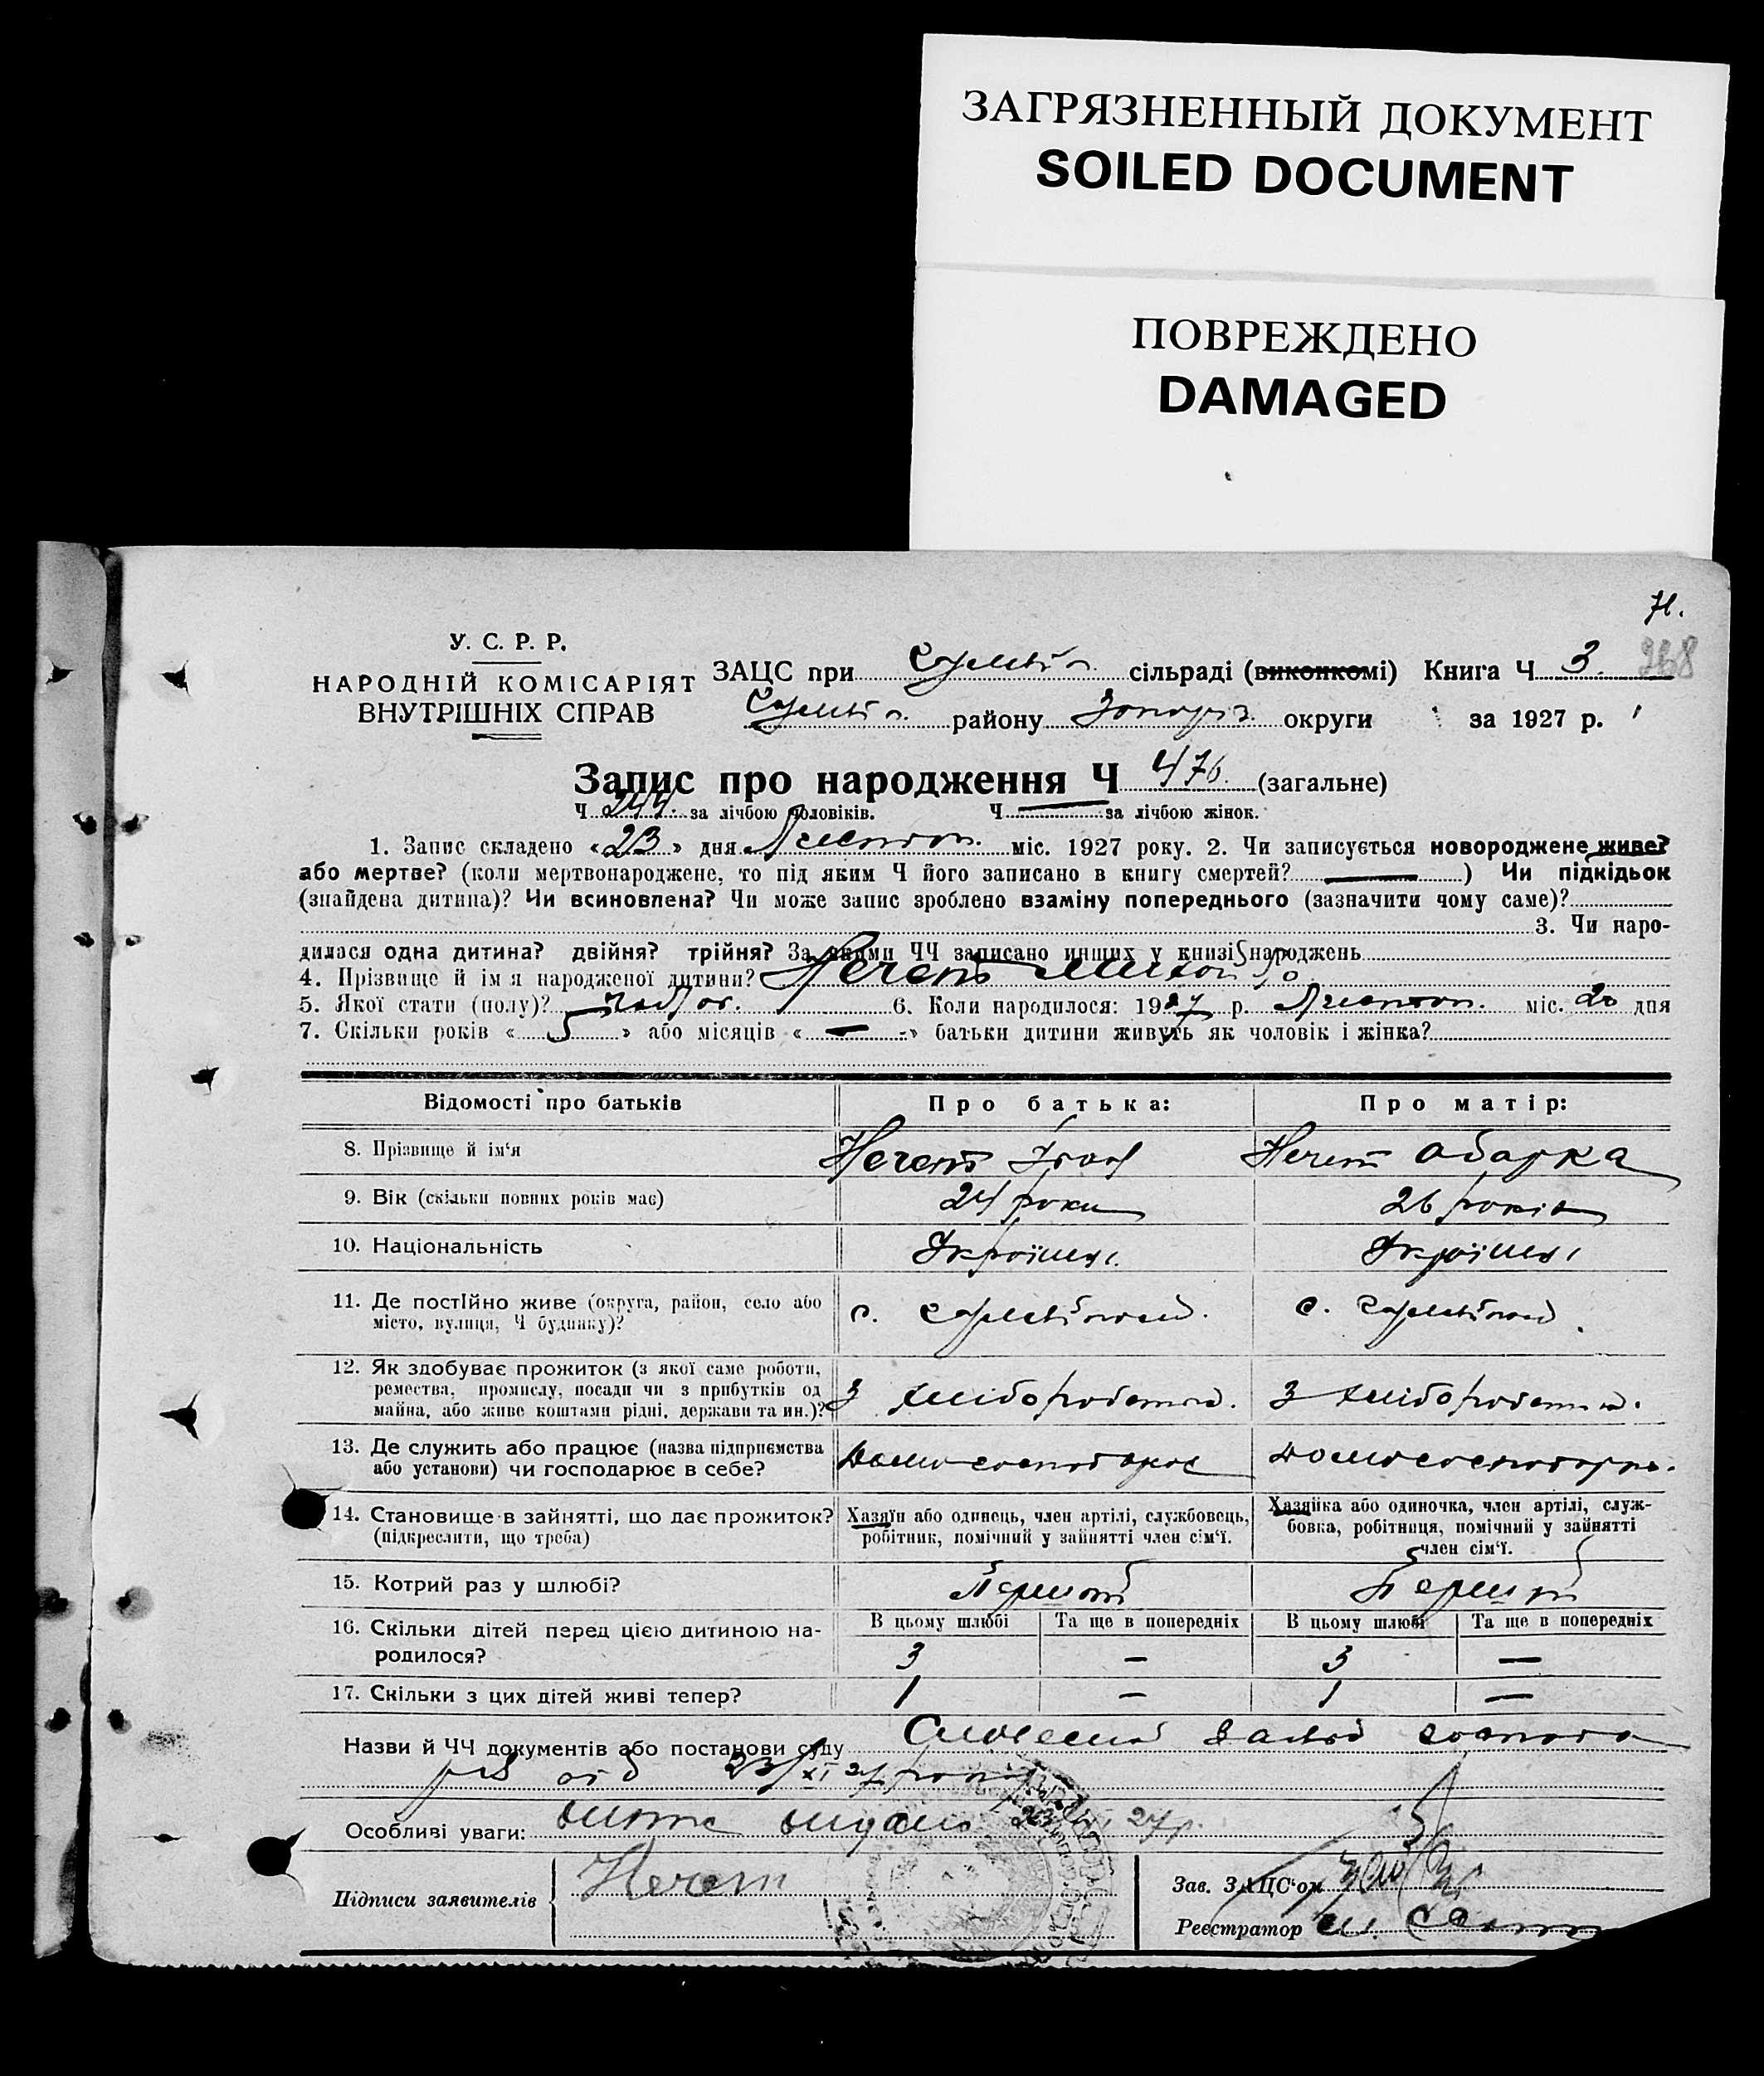 ЗАГРЯЗНЕННЫЙ ДОКУМЕНТ
SOILED DOCUMENT
ПОВРЕЖДЕНО
DAMAGED
71.
268
У. С. Р. Р.
НАРОДНІЙ КОМІСАРІЯТ
ВНУТРІШНІХ СПРАВ
ЗАЦС при сільраді (виконкомі) Книга Ч 3.
району Запоріз. округи за 1927 р.
Запис про народження Ч 476. (загальне)
Ч 244. за лічбою чоловіків. Ч — за лічбою жінок.
1. Запис складено «23» дня міс. 1927 року. 2. Чи записується новороджене живе?
або мертве? (коли мертвонароджене, то під яким Ч його записано в книгу смертей? — ) Чи підкідьок
(знайдена дитина)? Чи всиновлена? Чи може запис зроблено взаміну попереднього (зазначити чому саме)?
3. Чи наро-
дилася одна дитина? двійня? трійня? За якими ЧЧ записано инших у книзі народжень
4. Прізвище й ім'я народженої дитини? Нечет Михайло
5. Якої стати (полу)? 6. Коли народилося: 1927 р. міс. 20 дня
7. Скільки років « 5 » або місяців « — » батьки дитини живуть як чоловік і жінка?
Відомості про батьків Про батька: Про матір:
8. Прізвище й ім'я Нечет Іван Нечет Одарка
9. Вік (скільки повних років має) 24 роки 26 років
10. Національність
11. Де постійно живе (округа, район, село або
місто, вулиця, Ч будинку)? с. с.
12. Як здобуває прожиток (з якої саме роботи,
ремества, промислу, посади чи з прибутків од
майна, або живе коштами рідні, держави та ин.)? З хлібороб З хлібороб
13. Де служить або працює (назва підприємства
або установи) чи господарює в себе?
14. Становище в зайнятті, що дає прожиток?
(підкреслити, що треба)
Хазяїн або одинець, член артілі, службовець,
робітник, помічний у зайнятті член сім'ї.
Хазяйка або одиночка, член артілі, служ-
бовка, робітниця, помічний у зайнятті
член сім'ї.
15. Котрий раз у шлюбі? Перший Перший
16. Скільки дітей перед цією дитиною на-
родилося?
В цьому шлюбі Та ще в попередніх В цьому шлюбі Та ще в попередніх
3 — 3 —
17. Скільки з цих дітей живі тепер? 1 — 1 —
Назви й ЧЧ документів або постанови суду
від 23/XI 27 року
Особливі уваги: 27 р.
Підписи заявителів Нечет
Зав. ЗАЦС'ом
Реєстратор